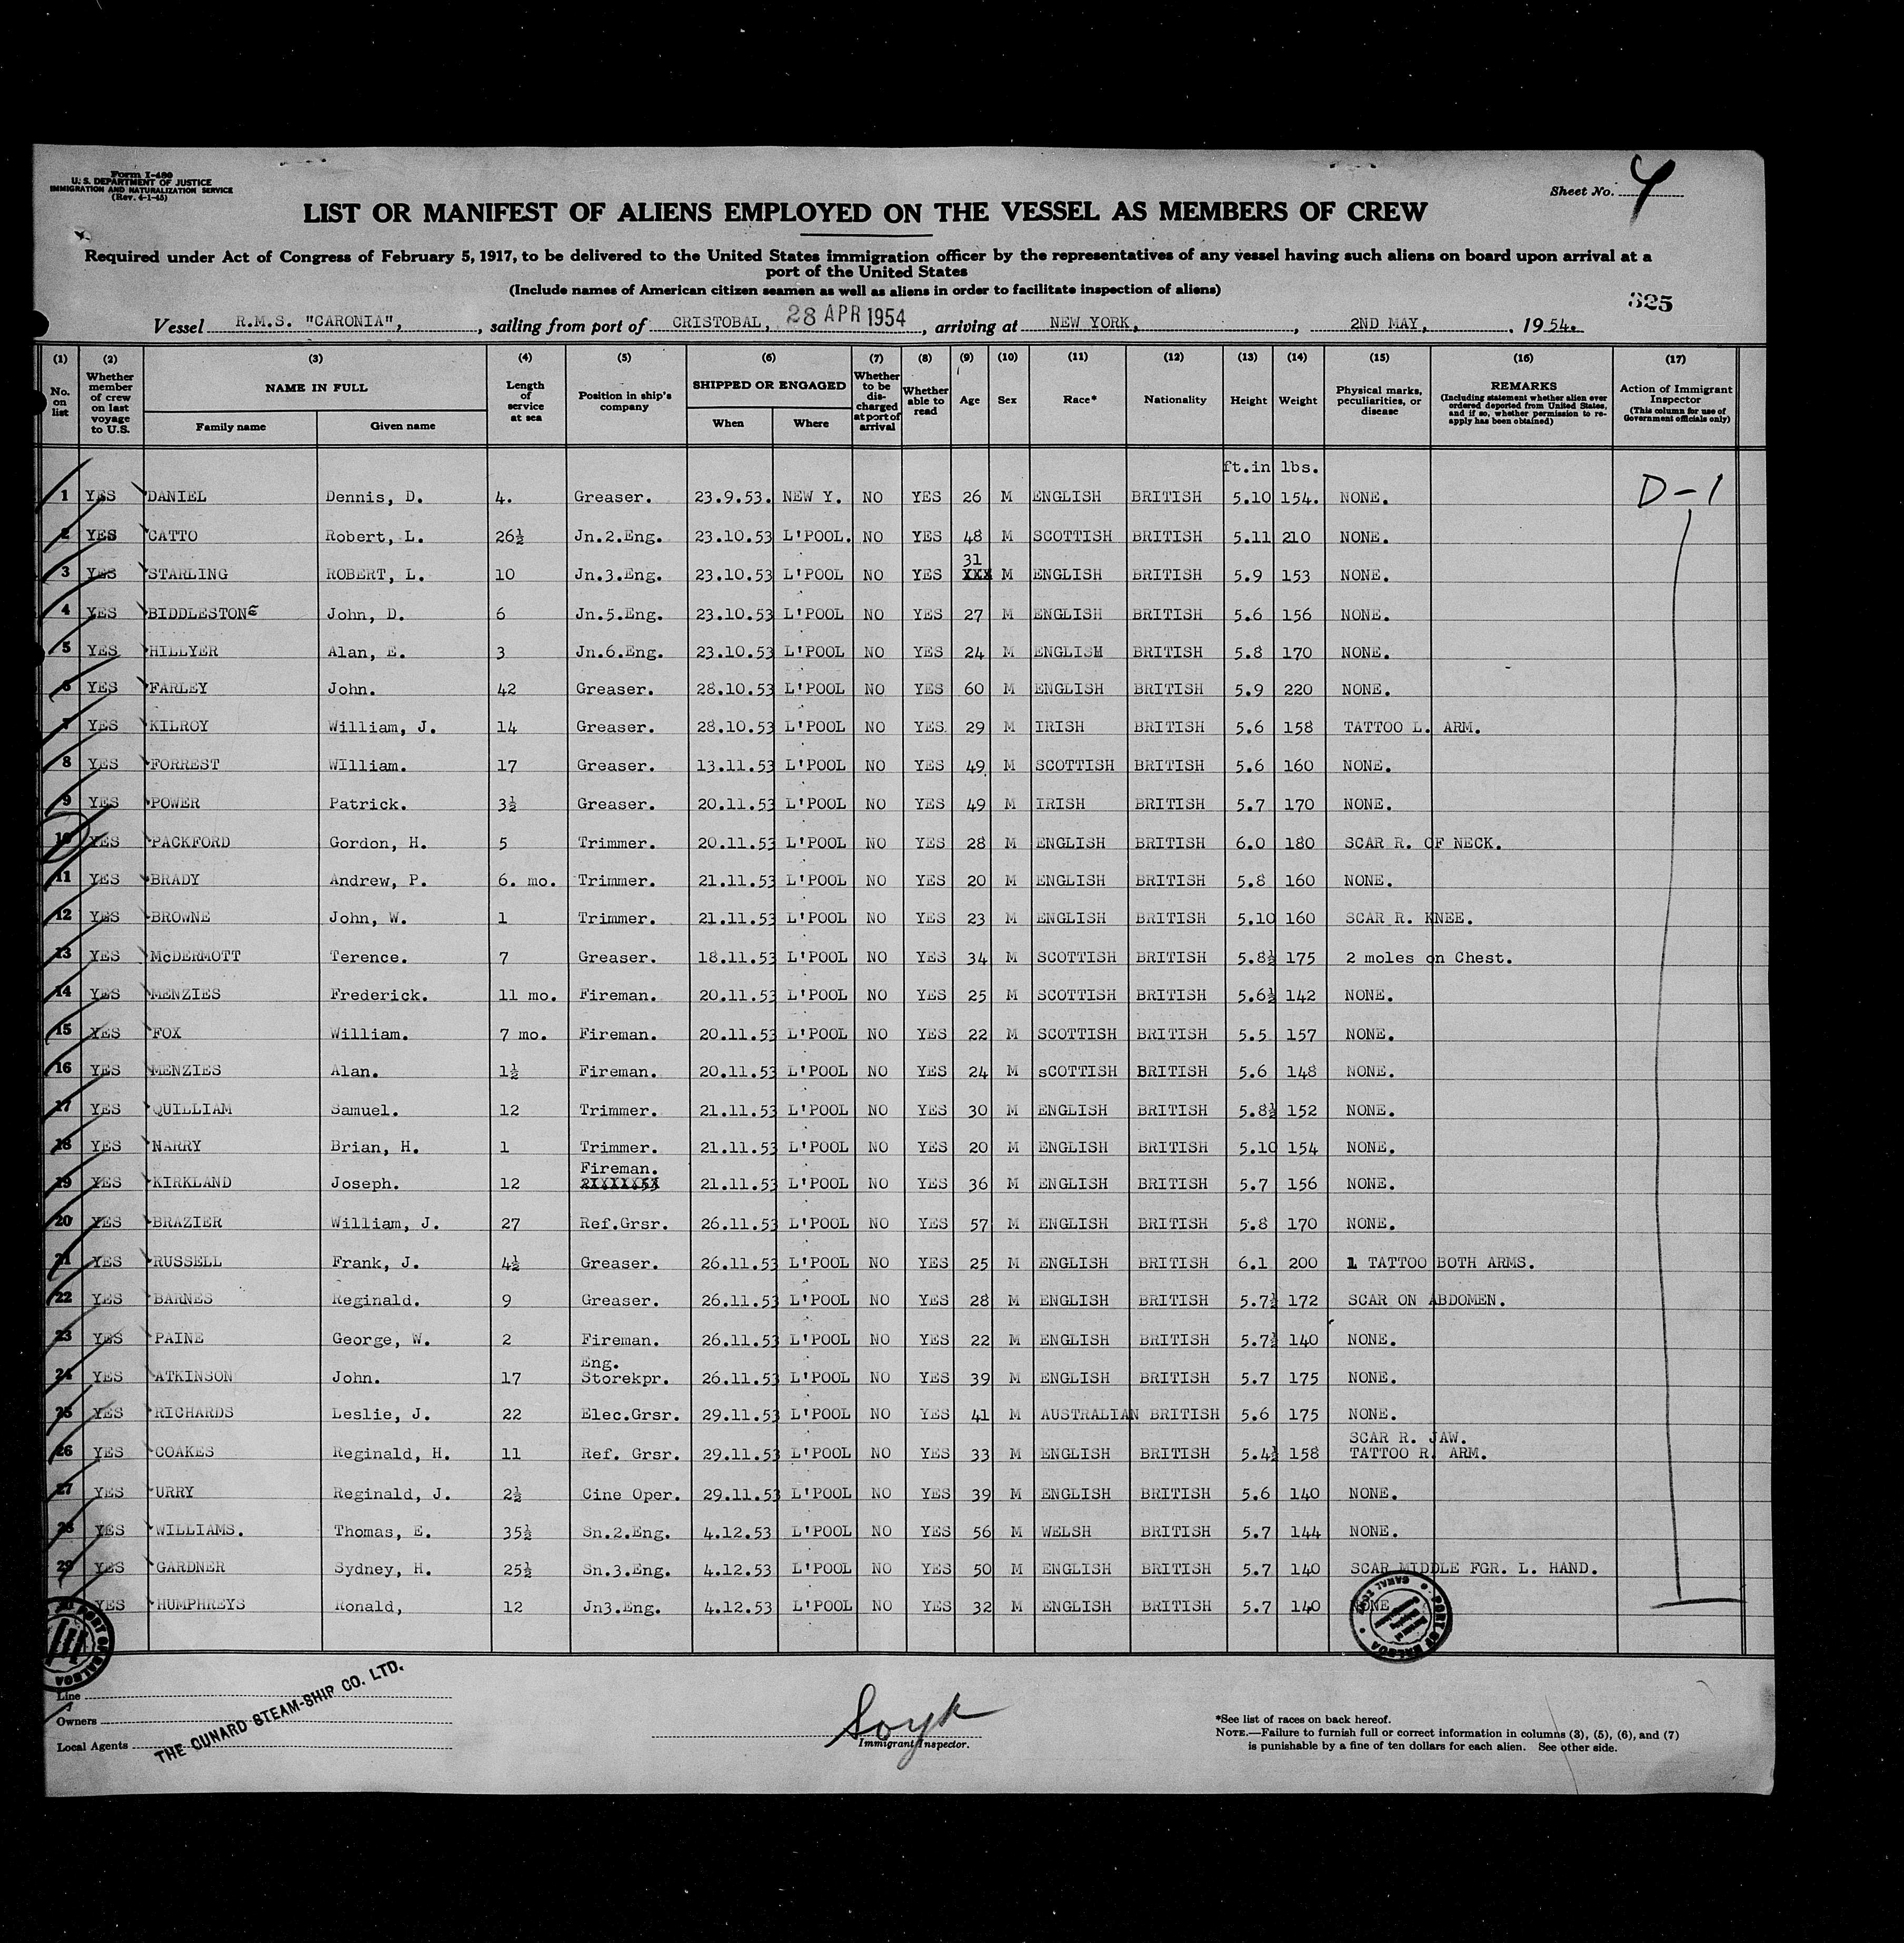 Form I-480
U. S. DEPARTMENT OF JUSTICE
IMMIGRATION AND NATURALIZATION SERVICE
(Rev. 4-1-45)
Sheet No. 4
LIST OR MANIFEST OF ALIENS EMPLOYED ON THE VESSEL AS MEMBERS OF CREW
Required under Act of Congress of February 5, 1917, to be delivered to the United States immigration officer by the representatives of any vessel having such aliens on board upon arrival at a
port of the United States
(Include names of American citizen seamen as well as aliens in order to facilitate inspection of aliens)
325
Vessel R.M.S. "CARONIA", , sailing from port of CRISTOBAL, 28 APR 1954 , arriving at NEW YORK, , 2ND MAY, , 1954.
(1) (2) (3) (4) (5) (6) (7) (8) (9) (10) (11) (12) (13) (14) (15) (16) (17)
No. on list
Whether member of crew on last voyage to U.S.
NAME IN FULL
Family name
Given name
Length of service at sea
Position in ship's company
SHIPPED OR ENGAGED
When
Where
Whether to be discharged at port of arrival
Whether able to read
Age
Sex
Race*
Nationality
Height
Weight
Physical marks, peculiarities, or disease
REMARKS
(Including statement whether alien ever ordered deported from United States, and if so, whether permission to reapply has been obtained)
Action of Immigrant Inspector
(This column for use of Government officials only)
ft.in lbs.
1 YES DANIEL Dennis, D. 4. Greaser. 23.9.53. NEW Y. NO YES 26 M ENGLISH BRITISH 5.10 154. NONE. D-1
2 YES CATTO Robert, L. 26½ Jn.2.Eng. 23.10.53 L'POOL. NO YES 48 M SCOTTISH BRITISH 5.11 210 NONE.
31
3 YES STARLING ROBERT, L. 10 Jn.3.Eng. 23.10.53 L'POOL NO YES XXX M ENGLISH BRITISH 5.9 153 NONE.
4 YES BIDDLESTONE John, D. 6 Jn.5.Eng. 23.10.53 L'POOL NO YES 27 M ENGLISH BRITISH 5.6 156 NONE.
5 YES HILLYER Alan, E. 3 Jn.6.Eng. 23.10.53 L'POOL NO YES 24 M ENGLISH BRITISH 5.8 170 NONE.
6 YES FARLEY John. 42 Greaser. 28.10.53 L'POOL NO YES 60 M ENGLISH BRITISH 5.9 220 NONE.
7 YES KILROY William, J. 14 Greaser. 28.10.53 L'POOL NO YES 29 M IRISH BRITISH 5.6 158 TATTOO L. ARM.
8 YES FORREST WIlliam. 17 Greaser. 13.11.53 L'POOL NO YES 49 M SCOTTISH BRITISH 5.6 160 NONE.
9 YES POWER Patrick. 3½ Greaser. 20.11.53 L'POOL NO YES 49 M IRISH BRITISH 5.7 170 NONE.
10 YES PACKFORD Gordon, H. 5 Trimmer. 20.11.53 L'POOL NO YES 28 M ENGLISH BRITISH 6.0 180 SCAR R. OF NECK.
11 YES BRADY Andrew, P. 6. mo. Trimmer. 21.11.53 L'POOL NO YES 20 M ENGLISH BRITISH 5.8 160 NONE.
12 YES BROWNE John, W. 1 Trimmer. 21.11.53 L'POOL NO YES 23 M ENGLISH BRITISH 5.10 160 SCAR R. KNEE.
13 YES McDERMOTT Terence. 7 Greaser. 18.11.53 L'POOL NO YES 34 M SCOTTISH BRITISH 5.8½ 175 2 moles on Chest.
14 YES MENZIES Frederick. 11 mo. Fireman. 20.11.53 L'POOL NO YES 25 M SCOTTISH BRITISH 5.6½ 142 NONE.
15 YES FOX William. 7 mo. Fireman. 20.11.53 L'POOL NO YES 22 M SCOTTISH BRITISH 5.5 157 NONE.
16 YES MENZIES Alan. 1½ Fireman. 20.11.53 L'POOL NO YES 24 M sCOTTISH BRITISH 5.6 148 NONE.
17 YES QUILLIAM Samuel. 12 Trimmer. 21.11.53 L'POOL NO YES 30 M ENGLISH BRITISH 5.8½ 152 NONE.
18 YES NARRY Brian, H. 1 Trimmer. 21.11.53 L'POOL NO YES 20 M ENGLISH BRITISH 5.10 154 NONE.
Fireman.
19 YES KIRKLAND Joseph. 12 21.11.53 L'POOL NO YES 36 M ENGLISH BRITISH 5.7 156 NONE.
20 YES BRAZIER William, J. 27 Ref.Grsr. 26.11.53 L'POOL NO YES 57 M ENGLISH BRITISH 5.8 170 NONE.
21 YES RUSSELL Frank, J. 4½ Greaser. 26.11.53 L'POOL NO YES 25 M ENGLISH BRITISH 6.1 200 1 TATTOO BOTH ARMS.
22 YES BARNES Reginald. 9 Greaser. 26.11.53 L'POOL NO YES 28 M ENGLISH BRITISH 5.7½ 172 SCAR ON ABDOMEN.
23 YES PAINE George, W. 2 Fireman. 26.11.53 L'POOL NO YES 22 M ENGLISH BRITISH 5.7½ 140 NONE.
Eng.
24 YES ATKINSON John. 17 Storekpr. 26.11.53 L'POOL NO YES 39 M ENGLISH BRITISH 5.7 175 NONE.
25 YES RICHARDS Leslie, J. 22 Elec.Grsr. 29.11.53 L'POOL NO YES 41 M AUSTRALIAN BRITISH 5.6 175 NONE.
SCAR R. JAW.
26 YES COAKES Reginald, H. 11 Ref. Grsr. 29.11.53 L'POOL NO YES 33 M ENGLISH BRITISH 5.4½ 158 TATTOO R. ARM.
27 YES URRY Reginald, J. 2½ Cine Oper. 29.11.53 L'POOL NO YES 39 M ENGLISH BRITISH 5.6 140 NONE.
28 YES WILLIAMS. Thomas, E. 35½ Sn.2.Eng. 4.12.53 L'POOL NO YES 56 M WELSH BRITISH 5.7 144 NONE.
29 YES GARDNER Sydney, H. 25½ Sn.3.Eng. 4.12.53 L'POOL NO YES 50 M ENGLISH BRITISH 5.7 140 SCAR MIDDLE FGR. L. HAND.
YES HUMPHREYS Ronald, 12 Jn3.Eng. 4.12.53 L'POOL NO YES 32 M ENGLISH BRITISH 5.7 140 NONE
PORT OF BALBOA
PORT OF BALBOA CANAL ZONE
Line
Owners
Local Agents
THE CUNARD STEAM-SHIP CO. LTD.
Soyk
Immigrant Inspector.
*See list of races on back hereof.
NOTE.—Failure to furnish full or correct information in columns (3), (5), (6), and (7)
is punishable by a fine of ten dollars for each alien. See other side.